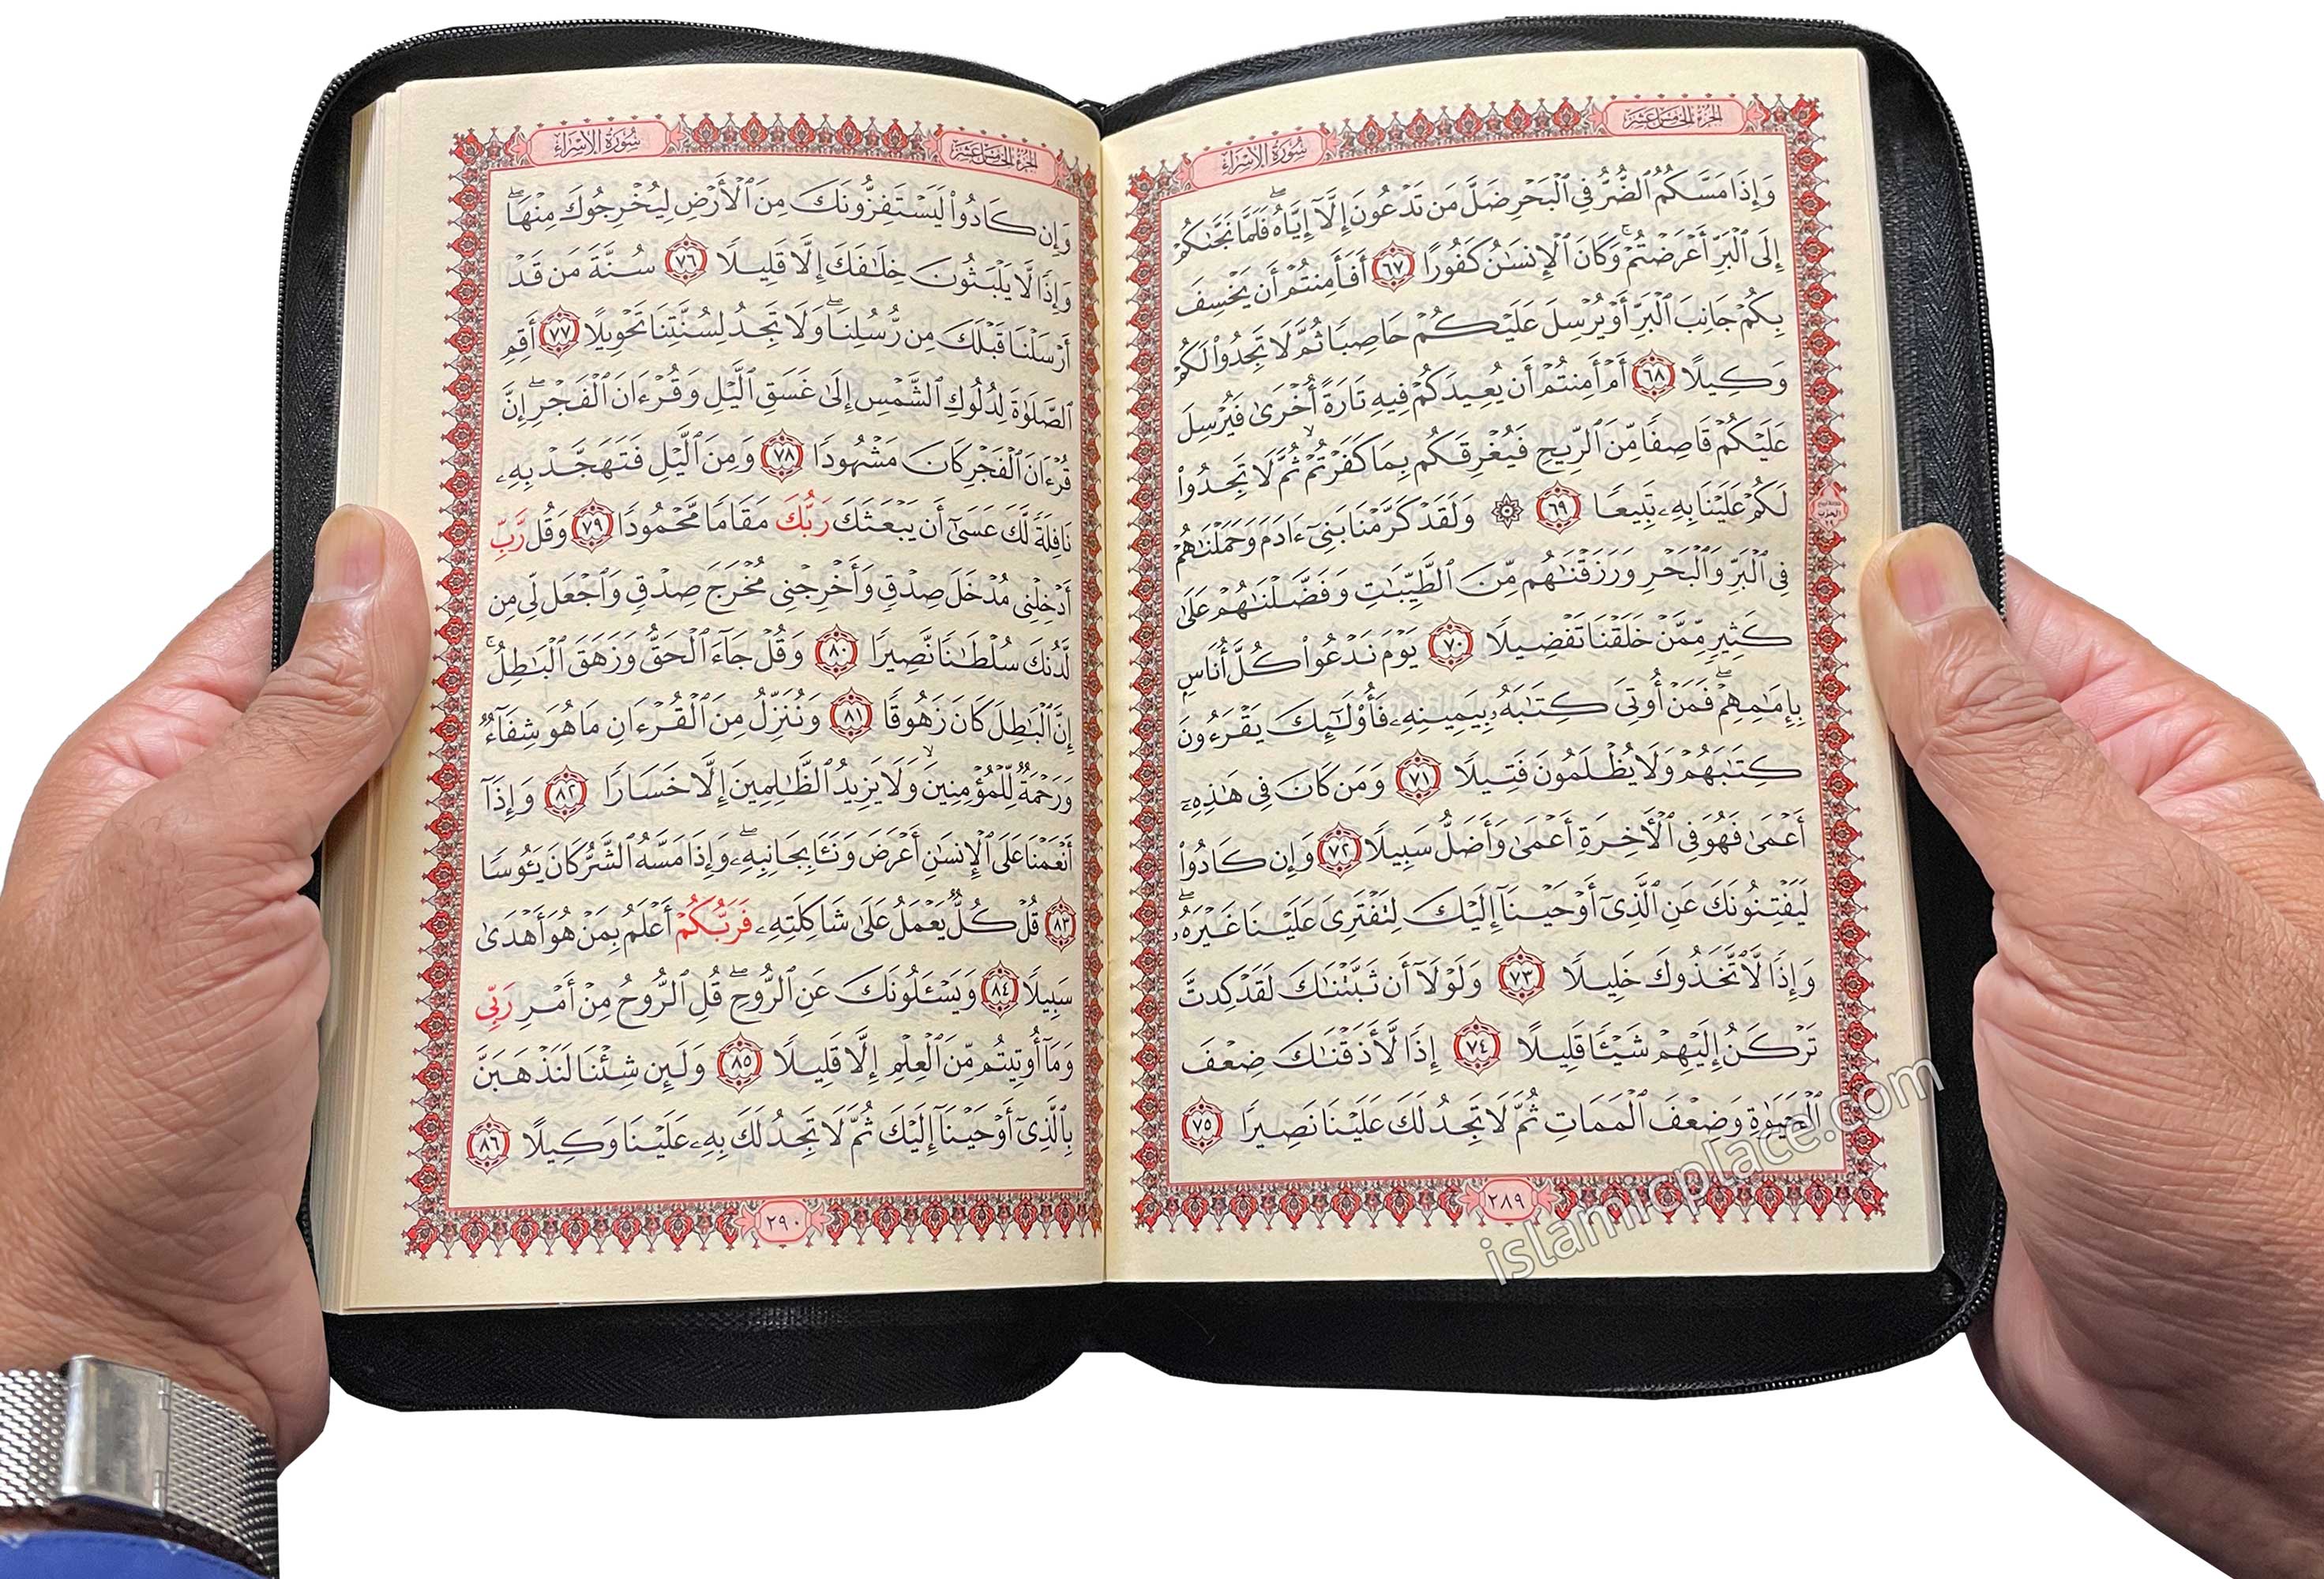 الجزء الخامس عشر
سورة الإسراء
وَإِذَا مَسَّكُمُ ٱلضُّرُّ فِى ٱلْبَحْرِ ضَلَّ مَن تَدْعُونَ إِلَّآ إِيَّاهُ ۖ فَلَمَّا نَجَّىٰكُمْ
إِلَى ٱلْبَرِّ أَعْرَضْتُمْ ۚ وَكَانَ ٱلْإِنسَٰنُ كَفُورًا ٦٧ أَفَأَمِنتُمْ أَن يَخْسِفَ
بِكُمْ جَانِبَ ٱلْبَرِّ أَوْ يُرْسِلَ عَلَيْكُمْ حَاصِبًا ثُمَّ لَا تَجِدُوا۟ لَكُمْ
وَكِيلًا ٦٨ أَمْ أَمِنتُمْ أَن يُعِيدَكُمْ فِيهِ تَارَةً أُخْرَىٰ فَيُرْسِلَ
عَلَيْكُمْ قَاصِفًا مِّنَ ٱلرِّيحِ فَيُغْرِقَكُم بِمَا كَفَرْتُمْ ۙ ثُمَّ لَا تَجِدُوا۟
لَكُمْ عَلَيْنَا بِهِۦ تَبِيعًا ٦٩ ۞ وَلَقَدْ كَرَّمْنَا بَنِىٓ ءَادَمَ وَحَمَلْنَٰهُمْ
فِى ٱلْبَرِّ وَٱلْبَحْرِ وَرَزَقْنَٰهُم مِّنَ ٱلطَّيِّبَٰتِ وَفَضَّلْنَٰهُمْ عَلَىٰ
كَثِيرٍ مِّمَّنْ خَلَقْنَا تَفْضِيلًا ٧٠ يَوْمَ نَدْعُوا۟ كُلَّ أُنَاسٍۭ
بِإِمَٰمِهِمْ ۖ فَمَنْ أُوتِىَ كِتَٰبَهُۥ بِيَمِينِهِۦ فَأُو۟لَٰٓئِكَ يَقْرَءُونَ
كِتَٰبَهُمْ وَلَا يُظْلَمُونَ فَتِيلًا ٧١ وَمَن كَانَ فِى هَٰذِهِۦٓ
أَعْمَىٰ فَهُوَ فِى ٱلْءَاخِرَةِ أَعْمَىٰ وَأَضَلُّ سَبِيلًا ٧٢ وَإِن كَادُوا۟
لَيَفْتِنُونَكَ عَنِ ٱلَّذِىٓ أَوْحَيْنَآ إِلَيْكَ لِتَفْتَرِىَ عَلَيْنَا غَيْرَهُۥ ۖ
وَإِذًا لَّٱتَّخَذُوكَ خَلِيلًا ٧٣ وَلَوْلَآ أَن ثَبَّتْنَٰكَ لَقَدْ كِدتَّ
تَرْكَنُ إِلَيْهِمْ شَيْـًٔا قَلِيلًا ٧٤ إِذًا لَّأَذَقْنَٰكَ ضِعْفَ
ٱلْحَيَوٰةِ وَضِعْفَ ٱلْمَمَاتِ ثُمَّ لَا تَجِدُ لَكَ عَلَيْنَا نَصِيرًا ٧٥
٢٨٩
الجزء الخامس عشر
سورة الإسراء
وَإِن كَادُوا۟ لَيَسْتَفِزُّونَكَ مِنَ ٱلْأَرْضِ لِيُخْرِجُوكَ مِنْهَا ۖ
وَإِذًا لَّا يَلْبَثُونَ خِلَٰفَكَ إِلَّا قَلِيلًا ٧٦ سُنَّةَ مَن قَدْ
أَرْسَلْنَا قَبْلَكَ مِن رُّسُلِنَا ۖ وَلَا تَجِدُ لِسُنَّتِنَا تَحْوِيلًا ٧٧ أَقِمِ
ٱلصَّلَوٰةَ لِدُلُوكِ ٱلشَّمْسِ إِلَىٰ غَسَقِ ٱلَّيْلِ وَقُرْءَانَ ٱلْفَجْرِ ۖ إِنَّ
قُرْءَانَ ٱلْفَجْرِ كَانَ مَشْهُودًا ٧٨ وَمِنَ ٱلَّيْلِ فَتَهَجَّدْ بِهِۦ
نَافِلَةً لَّكَ عَسَىٰٓ أَن يَبْعَثَكَ رَبُّكَ مَقَامًا مَّحْمُودًا ٧٩ وَقُل رَّبِّ
أَدْخِلْنِى مُدْخَلَ صِدْقٍ وَأَخْرِجْنِى مُخْرَجَ صِدْقٍ وَٱجْعَل لِّى مِن
لَّدُنكَ سُلْطَٰنًا نَّصِيرًا ٨٠ وَقُلْ جَآءَ ٱلْحَقُّ وَزَهَقَ ٱلْبَٰطِلُ ۚ
إِنَّ ٱلْبَٰطِلَ كَانَ زَهُوقًا ٨١ وَنُنَزِّلُ مِنَ ٱلْقُرْءَانِ مَا هُوَ شِفَآءٌ
وَرَحْمَةٌ لِّلْمُؤْمِنِينَ ۙ وَلَا يَزِيدُ ٱلظَّٰلِمِينَ إِلَّا خَسَارًا ٨٢ وَإِذَآ
أَنْعَمْنَا عَلَى ٱلْإِنسَٰنِ أَعْرَضَ وَنَـَٔا بِجَانِبِهِۦ ۖ وَإِذَا مَسَّهُ ٱلشَّرُّ كَانَ يَـُٔوسًا
٨٣ قُلْ كُلٌّ يَعْمَلُ عَلَىٰ شَاكِلَتِهِۦ فَرَبُّكُمْ أَعْلَمُ بِمَنْ هُوَ أَهْدَىٰ
سَبِيلًا ٨٤ وَيَسْـَٔلُونَكَ عَنِ ٱلرُّوحِ ۖ قُلِ ٱلرُّوحُ مِنْ أَمْرِ رَبِّى
وَمَآ أُوتِيتُم مِّنَ ٱلْعِلْمِ إِلَّا قَلِيلًا ٨٥ وَلَئِن شِئْنَا لَنَذْهَبَنَّ
بِٱلَّذِىٓ أَوْحَيْنَآ إِلَيْكَ ثُمَّ لَا تَجِدُ لَكَ بِهِۦ عَلَيْنَا وَكِيلًا ٨٦
٢٩٠
islamicplace.com